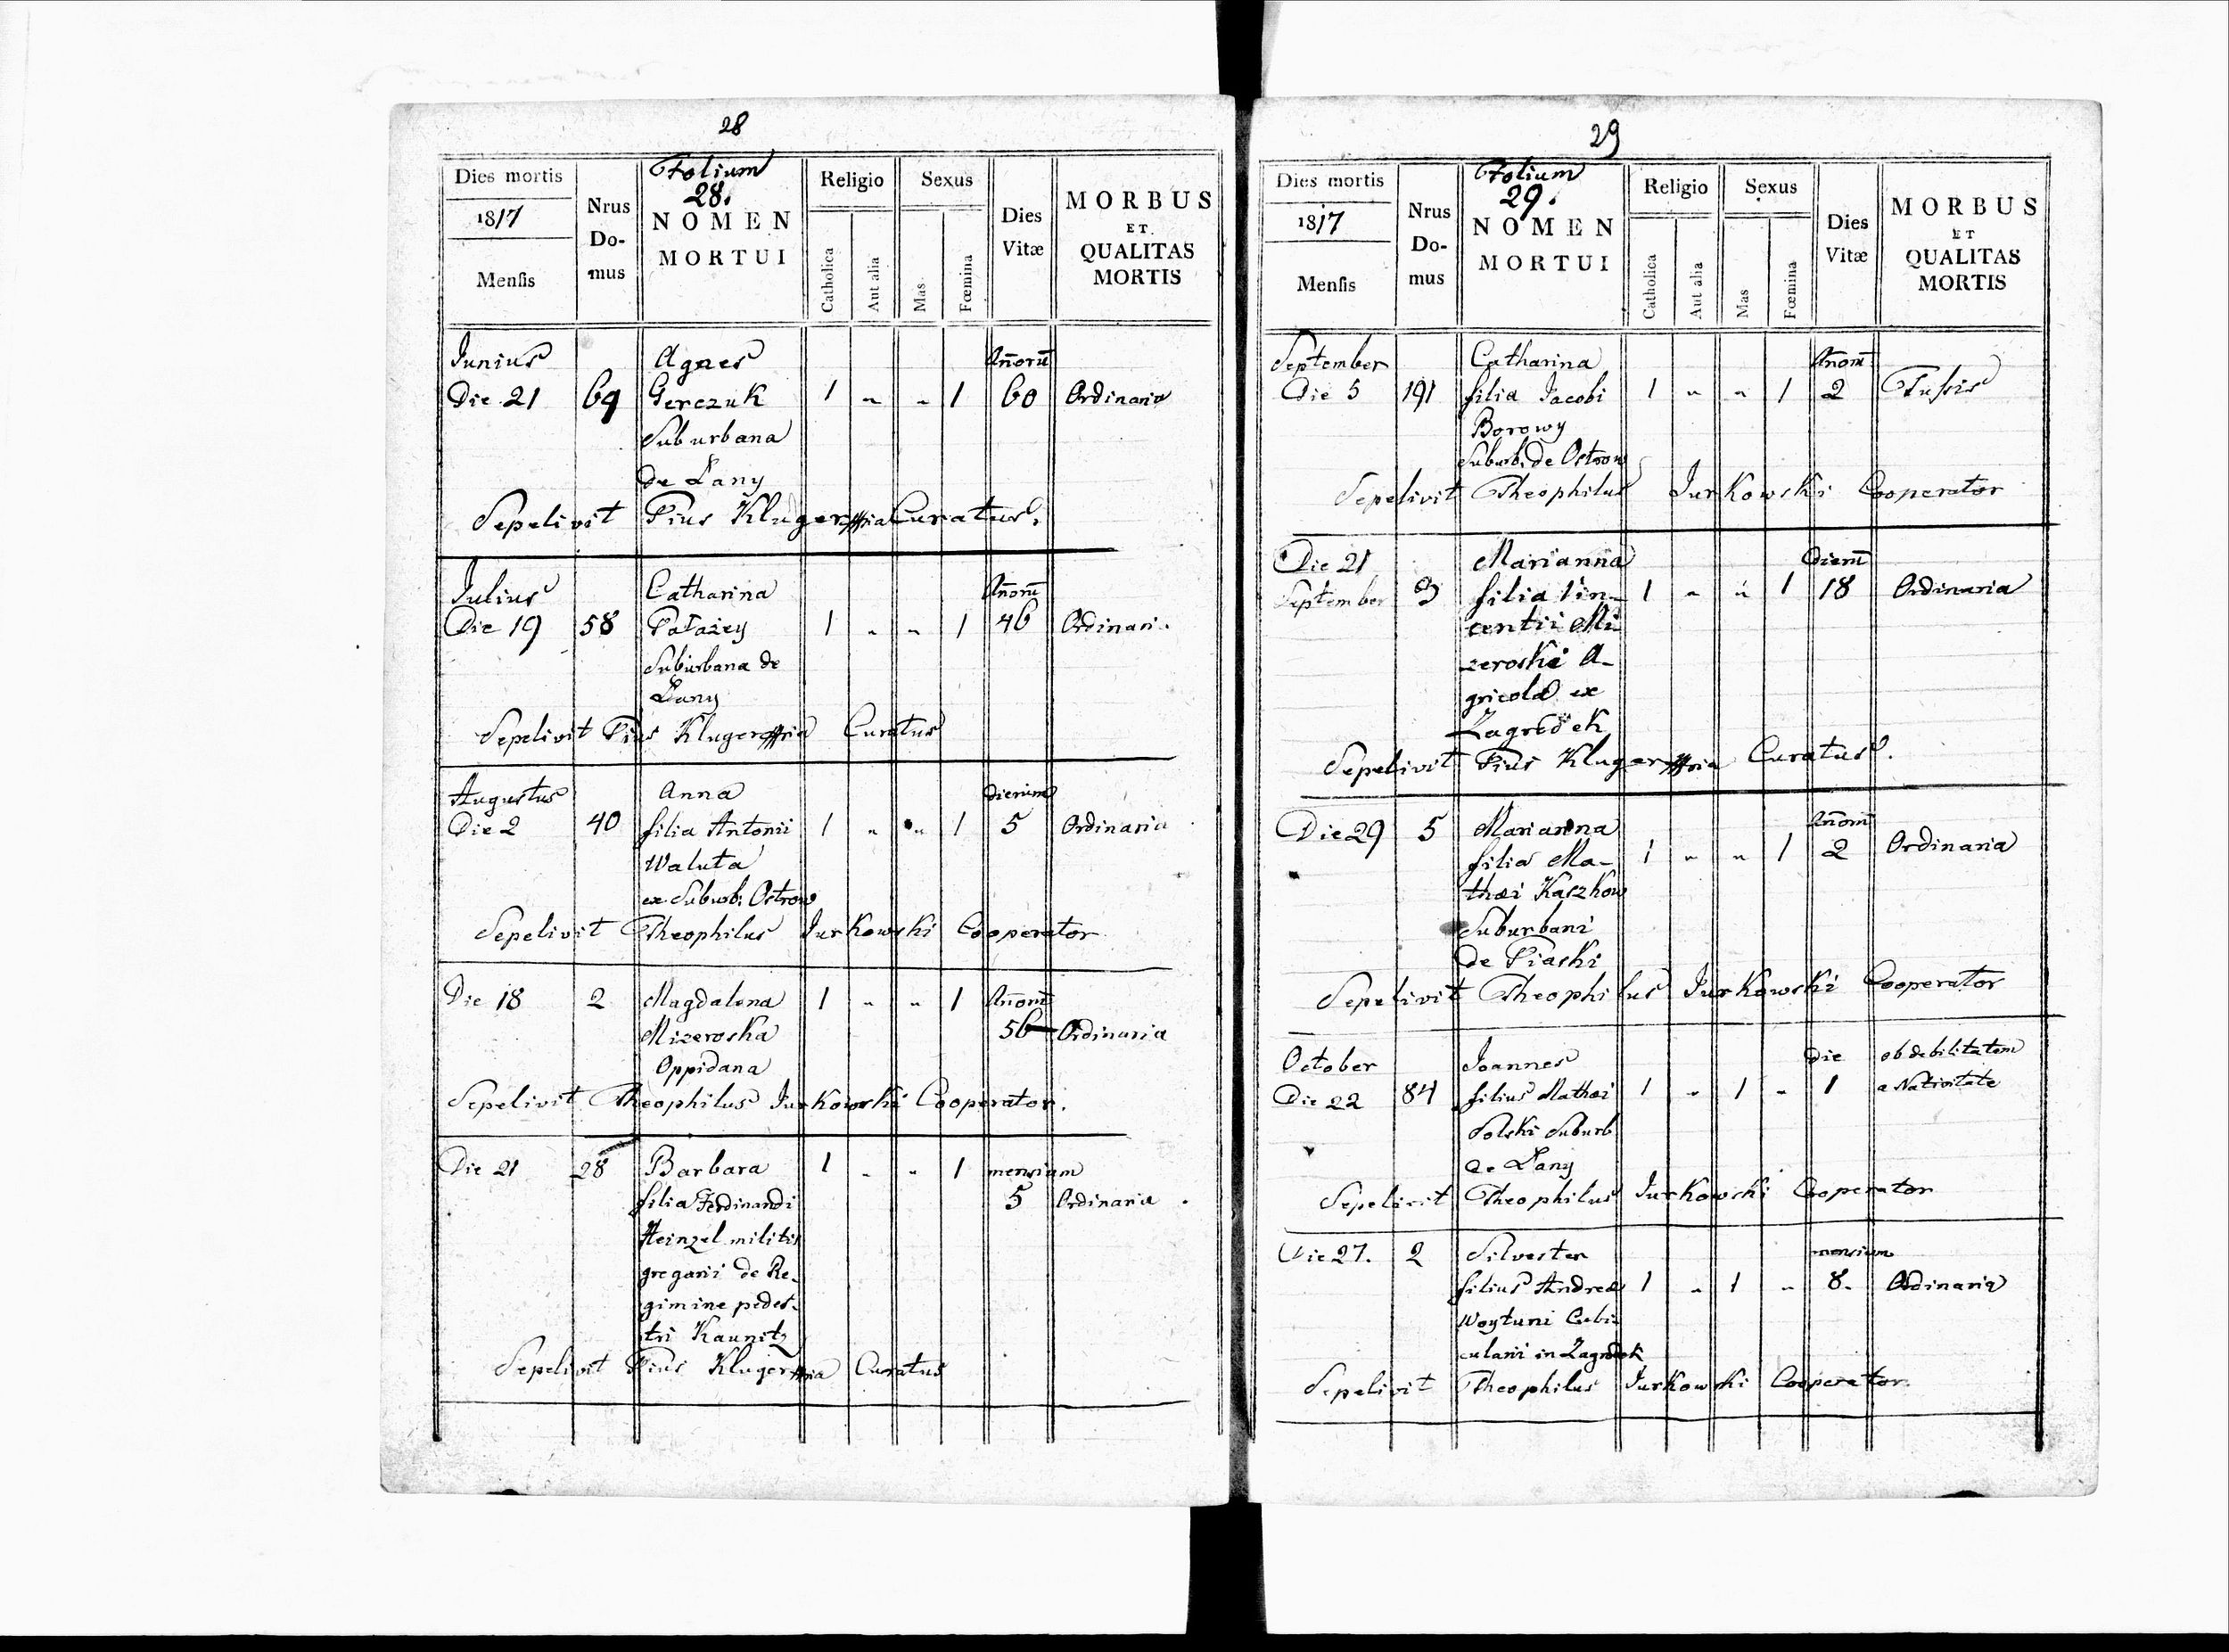 28
Dies mortis
1817
Mensis
Nrus Do- mus
Folium
28.
NOMEN
MORTUI
Religio
Catholica
Aut alia
Sexus
Mas
Fœmina
Dies
Vitæ
MORBUS
ET
QUALITAS
MORTIS
Junius Agnes Añorū
Die 21 69 Gerczuk 1 " " 1 60 Ordinaria
Suburbana
de Łany
Sepelivit Pius Kluger Curatus.
Julius Catharina Añorū
Die 19 58 1 " " 1 46 Ordinari.
Suburbana de
Łany
Sepelivit Pius Kluger Curatus
Augustus Anna Dierum
Die 2 40 filia Antonii 1 " " 1 5 Ordinaria
Waluta
ex Suburb: Ostrow
Sepelivit Theophilus Jurkowski Cooperator
Die 18 2 Magdalena 1 " " 1 Añorū
Mizeroska 56 Ordinaria
Oppidana
Sepelivit Theophilus Jurkowski Cooperator.
Die 21 28 Barbara 1 " " 1 mensium
filia Ferdinandi 5 Ordinaria
Heinzel militis
gregarii de Re-
gimine pedes-
tri Kaunitz
Sepelivit Pius Kluger Curatus
29
Dies mortis
1817
Mensis
Nrus Do- mus
Folium
29.
NOMEN
MORTUI
Religio
Catholica
Aut alia
Sexus
Mas
Fœmina
Dies
Vitæ
MORBUS
ET
QUALITAS
MORTIS
September Catharina Añorū
Die 5 191 filia Jacobi 1 " " 1 2 Tussis
Borowy
Suburb. de Ostrow
Sepelivit Theophilus Jurkowski Cooperator
Die 21 Marianna Dierū
September 3 filia Vin- 1 " " 1 18 Ordinaria
centii Mi-
zeroski A-
gricola ex
Zagrodek
Sepelivit Pius Kluger Curatus.
Die 29 5 Marianna Añorū
filia Ma- 1 " " 1 2 Ordinaria
thæi Kaszkow
Suburbani
de Piaski
Sepelivit Theophilus Jurkowski Cooperator
October Joannes Die ob debilitatem
Die 22 84 filius Mathæi 1 " 1 " 1 a Nativitate
Solski Suburb
de Łany
Sepelivit Theophilus Jurkowski Cooperator
Die 27. 2 Silvester mensium
filius Andreæ 1 " 1 " 8. Ordinaria
Woytuni Cubi-
culani in Zagrodek
Sepelivit Theophilus Jurkowski Cooperator.